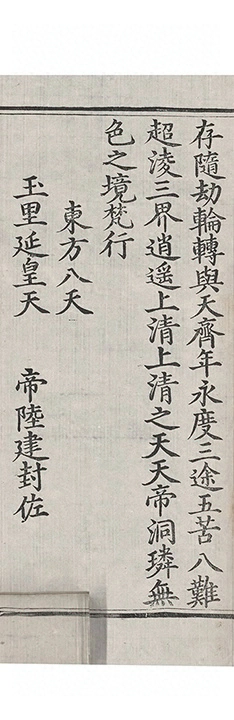 存隨劫輪轉與天齊年永度三途五苦八難
超淩三界逍遥上清上清之天天帝洞璘無
色之境梵行
東方八天
玉里延皇天　帝陸建封佐